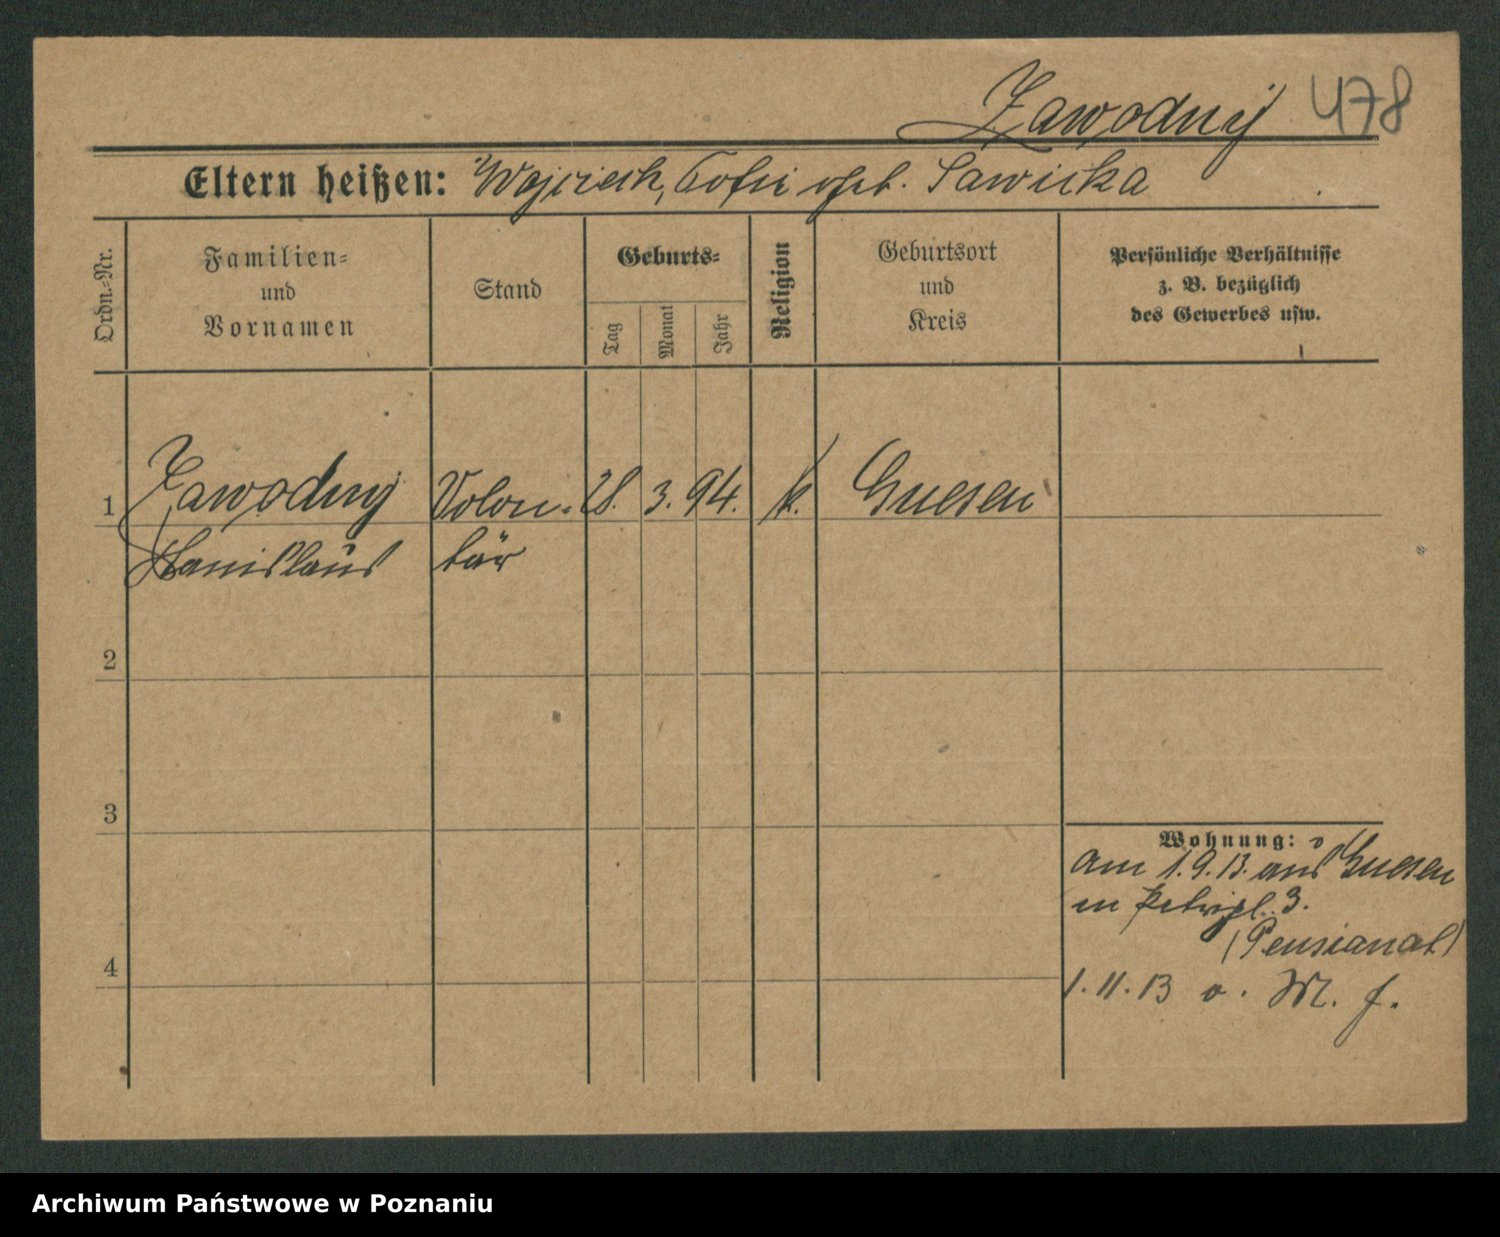 Zawodny 478
Eltern heißen: Wojciech, Sofie geb. Sawicka
Ordn.-Nr.
Familien- und Vornamen
Stand
Geburts-
Tag
Monat
Jahr
Religion
Geburtsort und Kreis
Persönliche Verhältnisse
z. B. bezüglich
des Gewerbes usw.
1 Zawodny Volon- 28. 3. 94. k. Gnesen
Stanislaus tär
2
3
Wohnung:
am 1.9.13. aus Gnesen
in Petripl. 3.
(Pensionat)
4
1.11.13 o. M. f.
Archiwum Państwowe w Poznaniu